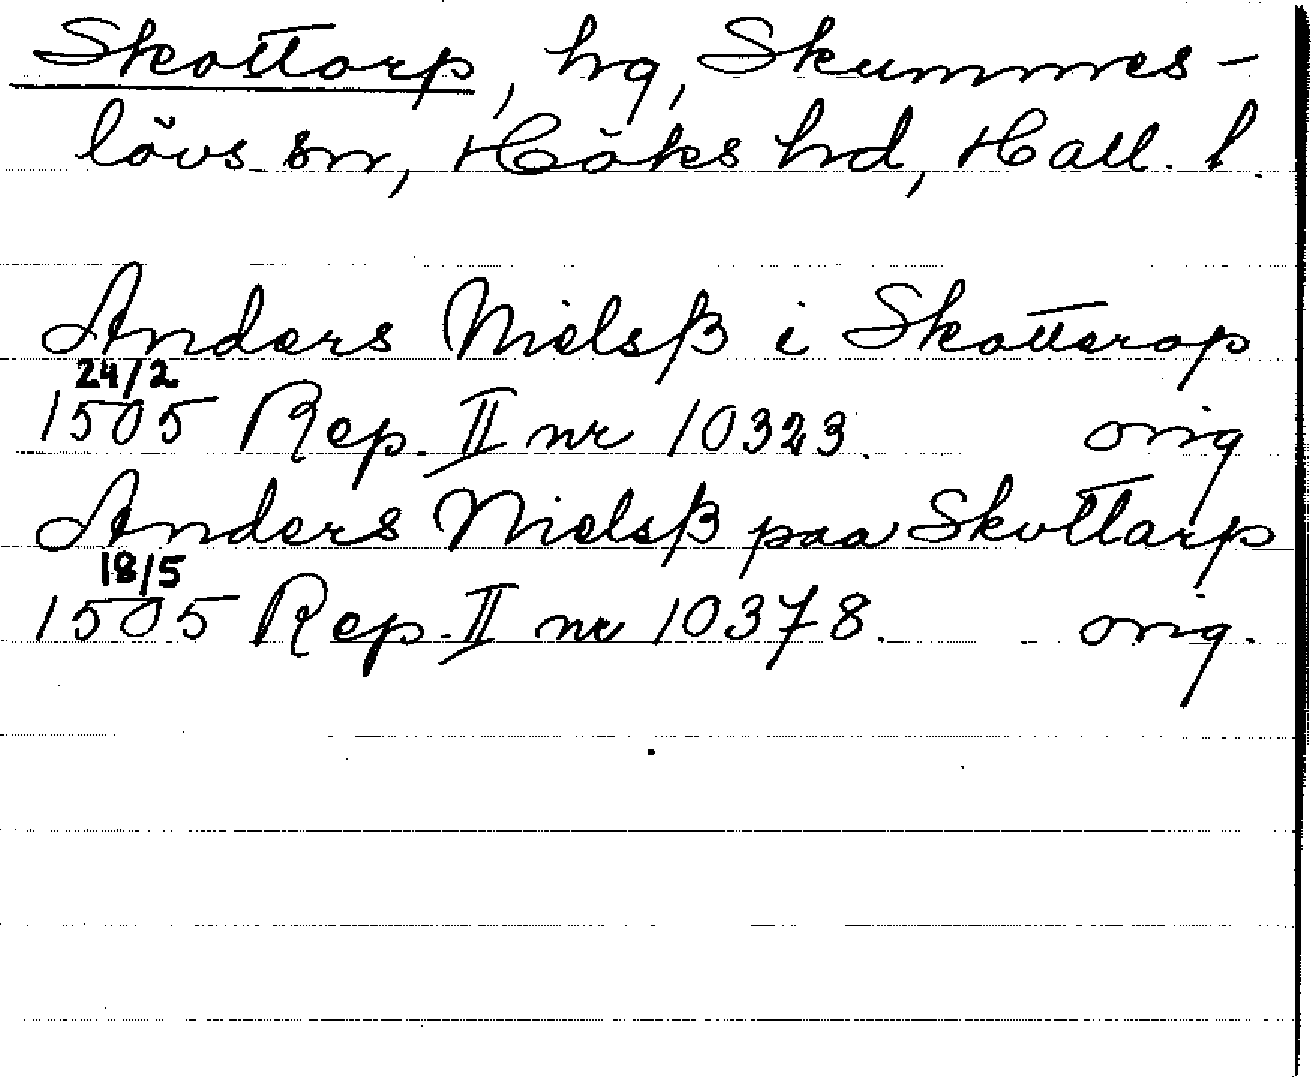 Skottorp, hg, Skummes-
lövs sn, Höks hd, Hall. l.
Anders Nielsß i Skotterop
24/2
1505 Rep. II nr 10323. orig
Anders Nielsß paa Skottarp
18/5
1505 Rep. II nr 10378. orig.